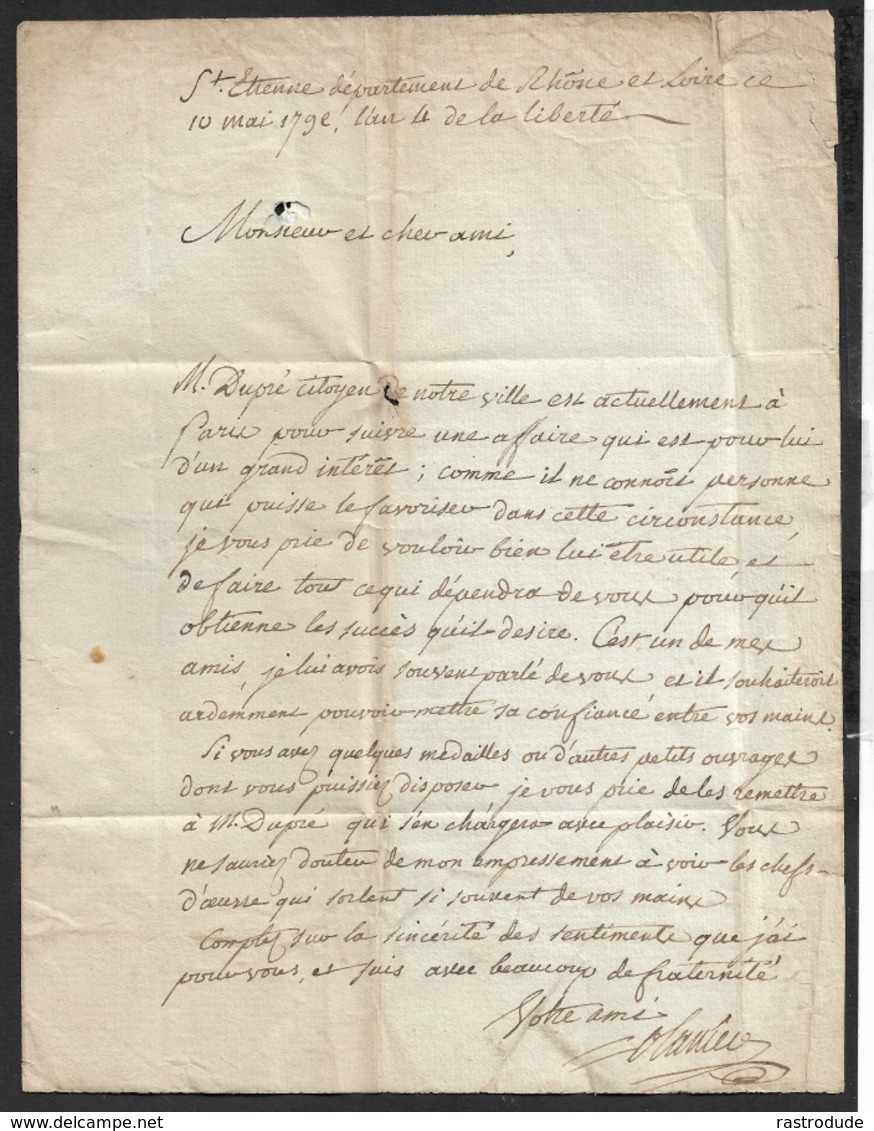 St. Etienne département de Rhône et Loire ce
10 mai 1792, l'an 4 de la liberté
Monsieur et cher ami,
M. Dupré citoyen de notre ville est actuellement à
Paris pour suivre une affaire qui est pour lui
d'un grand intérêt; comme il ne connoît personne
qui puisse le favoriser dans cette circonstance,
je vous prie de vouloir bien lui être utile, et
de faire tout ce qui dépendra de vous pour qu'il
obtienne les succès qu'il desire. C'est un de mes
amis, je lui avois souvent parlé de vous et il souhaiteroit
ardemment pouvoir mettre sa confiance entre vos mains.
Si vous avez quelques médailles ou d'autres petits ouvrages
dont vous puissiez disposer je vous prie de les remettre
à M. Dupré qui s'en chargera avec plaisir. Vous
ne sauriez douter de mon empressement à voir les chefs-
d'œuvre qui sortent si souvent de vos mains
Comptez sur la sincérité des sentiments que j'ai
pour vous, et suis avec beaucoup de fraternité
Votre ami
delcampe.net
rastrodude